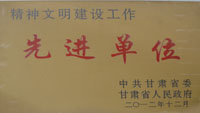 精神文明建设工作
先进单位
中共甘肃省委
甘肃省人民政府
二〇一二年十二月